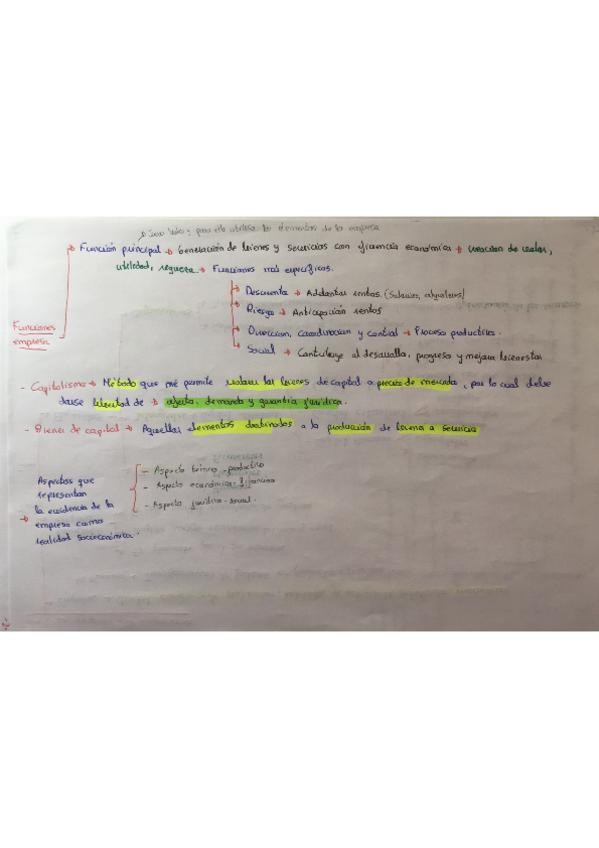 y para ello utiliza los elementos de la empresa
Funciones empresa
→ Función principal → Generación de bienes y servicios con eficiencia económica → creación de valor,
utilidad, riqueza → Funciones más específicas.
→ Descuenta → Adelantar rentas. (Salarios, alquileres)
→ Riesgo → Anticipación rentas
→ Dirección, coordinación y control → Proceso productivo.
→ Social → Contribuye al desarrollo, progreso y mejora bienestar
- Capitalismo → Método que me permite valorar los bienes de capital a precio de mercado, por lo cual debe
darse libertad de → oferta, demanda y garantía jurídica.
- Bienes de capital → Aquellos elementos destinados a la producción de bienes o servicio
→ Aspectos que
representan
la existencia de la
empresa como
realidad socioeconómica.
- Aspecto técnico-productivo
- Aspecto económico-financiero
- Aspecto jurídico-social.